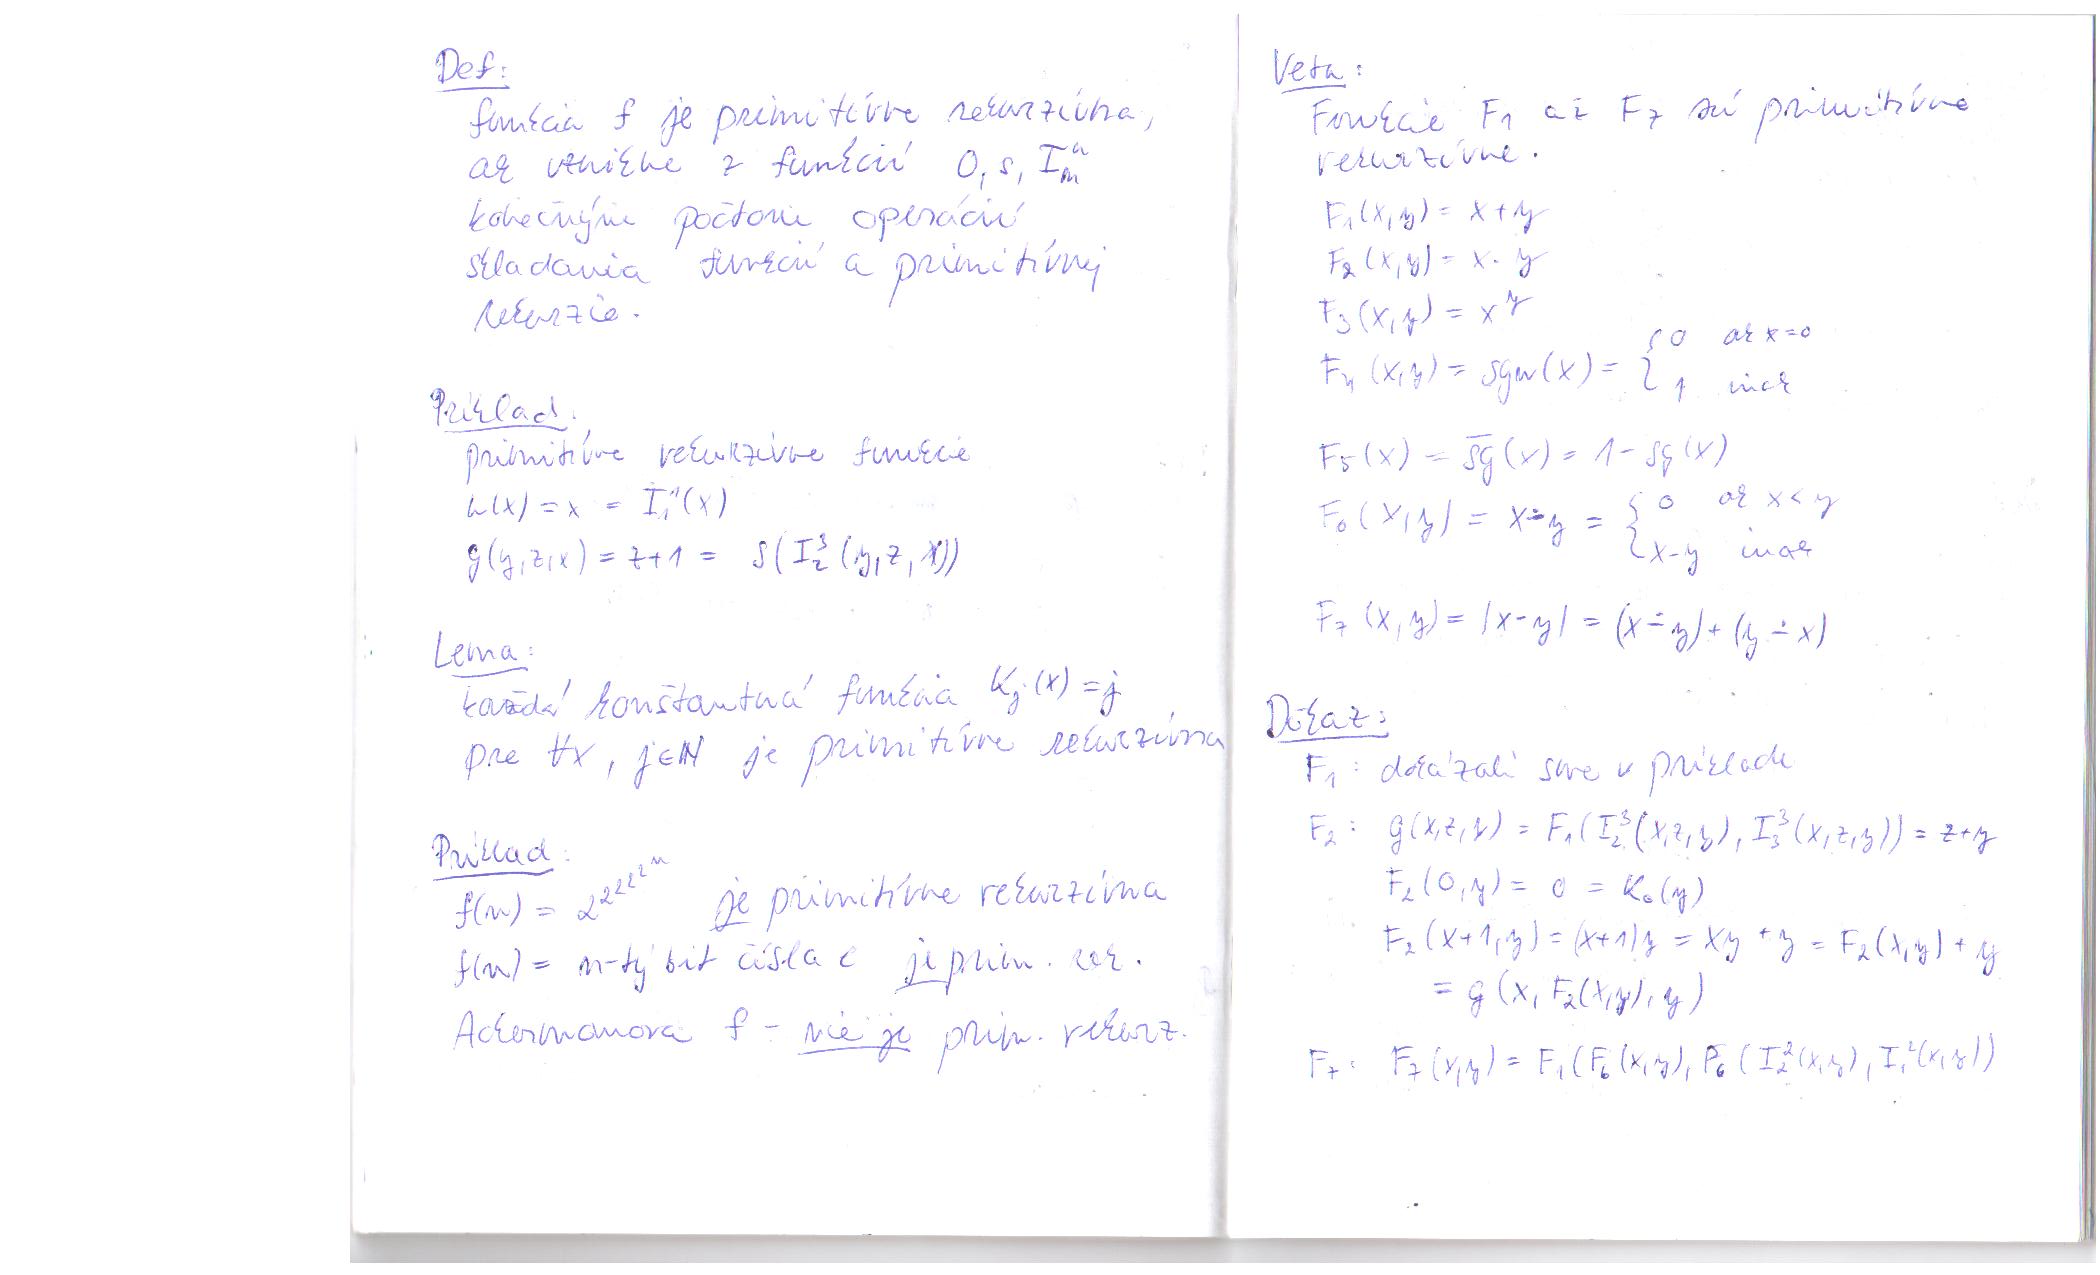 Def:
funkcia f je primitívne rekurzívna,
ak vznikne z funkcií 0, s, Iₘⁿ
konečným počtom operácií
skladania funkcií a primitívnej
rekurzie.
Príklad.
primitívne rekurzívne funkcie
h(x) = x = I₁¹(x)
g(y,z,x) = z+1 = S(I₂³(y,z,x))
Lema:
každá konštantná funkcia Kⱼ(x) = j
pre ∀x, j∈N je primitívne rekurzívna
Príklad:
f(n) = 2^2^2^2^2^n je primitívne rekurzívna
f(n) = n-tý bit čísla e je prim. rek.
Ackermanova f - nie je prim. rekurz.
Veta:
Funkcie F₁ až F₇ sú primitívne
rekurzívne.
F₁(x,y) = x+y
F₂(x,y) = x·y
F₃(x,y) = x^y
F₄(x,y) = sgn(x) = { 0 ak x=0
1 inak
F₅(x) = s̅g̅(x) = 1 - sg(x)
F₆(x,y) = x∸y = { 0 ak x<y
x-y inak
F₇(x,y) = |x-y| = (x∸y)+(y∸x)
Dôkaz:
F₁: dokázali sme v príklade
F₂: g(x,z,y) = F₁(I₂³(x,z,y), I₃³(x,z,y)) = z+y
F₂(0,y) = 0 = K₀(y)
F₂(x+1,y) = (x+1)y = xy + y = F₂(x,y) + y
= g(x, F₂(x,y), y)
F₇: F₇(x,y) = F₁(F₆(x,y), F₆(I₂²(x,y), I₁²(x,y))